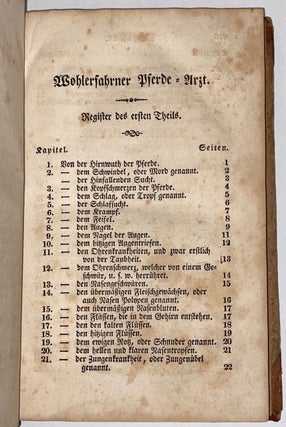 Wohlerfahrner Pferde-Arzt.
Register des ersten Theils.
Kapitel. Seiten.
1. Von der Hirnwuth der Pferde. 1
2. — dem Schwindel, oder Mord genannt. 2
— der Hinfallenden Sucht. 3
3. — den Kopfschmerzen der Pferde. 4
4. — dem Schlag, oder Tropf genannt. 4
5. — der Schlafsucht. 6
6. — dem Krampf. 7
7. — dem Feifel. 8
8. — den Augen. 9
9. — dem Nagel der Augen. 11
10. — dem hitzigen Augentriefen. 12
11. — den Ohrenkrankheiten, und zwar erstlich
von der Taubheit. 13
12. — dem Ohrenschmerz, welcher von einem Ge-
schwür, u. s. w. herrühret. 13
13. — den Nasengeschwüren. 15
14. — dem übermäßigen Fleischgewächsen, oder
auch Nasen Polypen genannt. 16
15. — dem übermäßigen Nasenbluten. 16
16. — den Flüssen, die in dem Gehirn entstehen. 17
17. — den kalten Flüssen. 18
18. — den hitzigen Flüssen. 19
19. — dem ewigen Rotz, oder Schnuder genannt. 20
20. — dem hellen und klaren Nasentropfen. 21
21. — der Zungenkrankheit, oder Zungenübel
genannt. 22